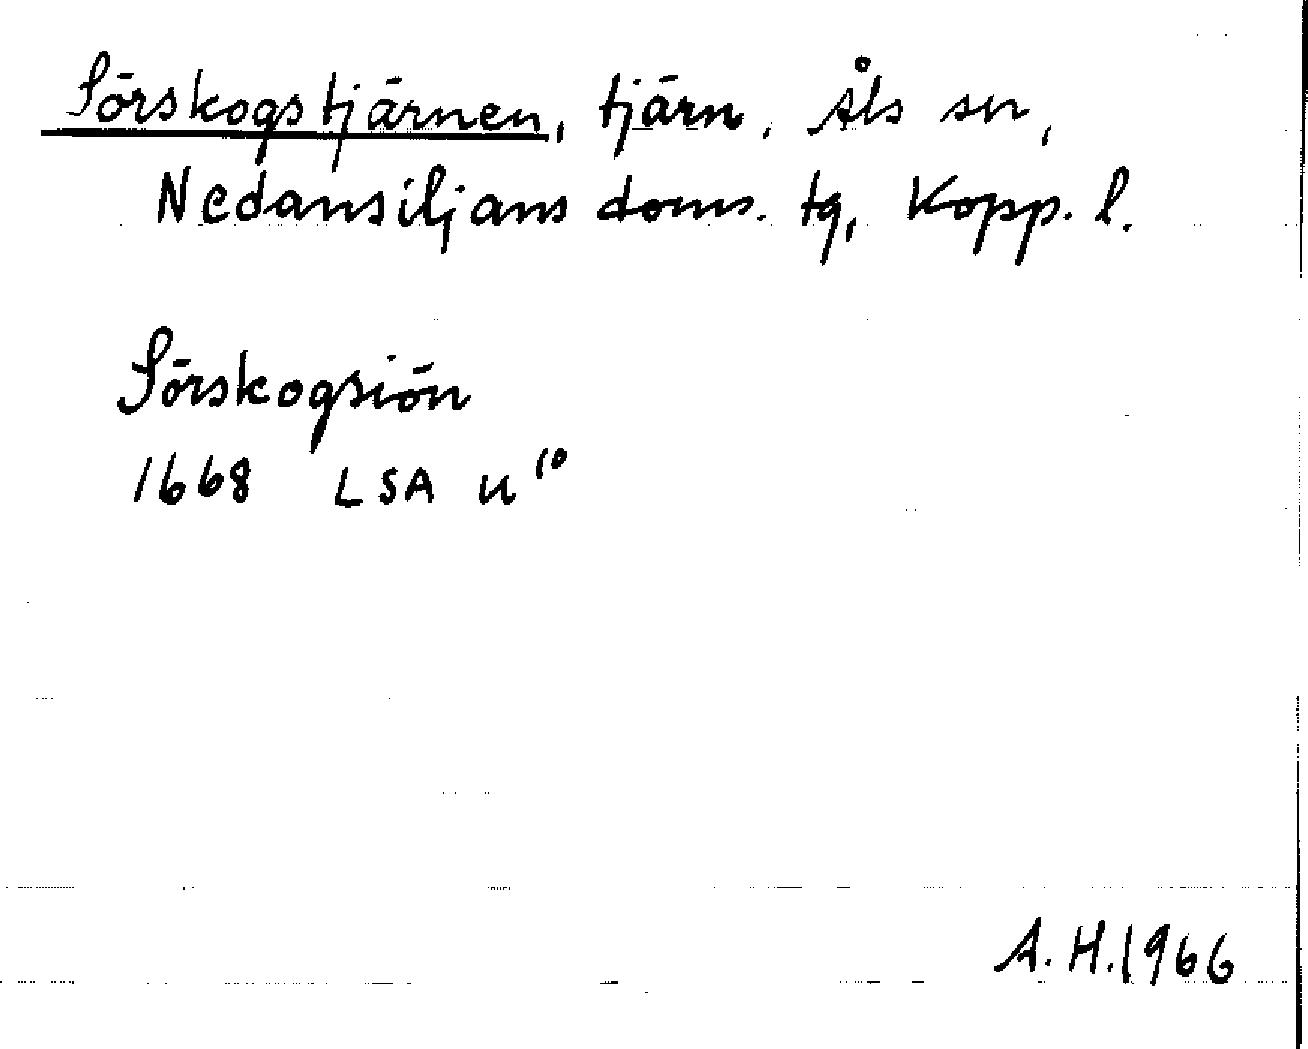 Sörskogstjärnen, tjärn, Åls sn,
Nedansiljans doms. tg, Kopp. l.
Sörskogsiön
1668 LSA u¹⁰
A. H. 1966